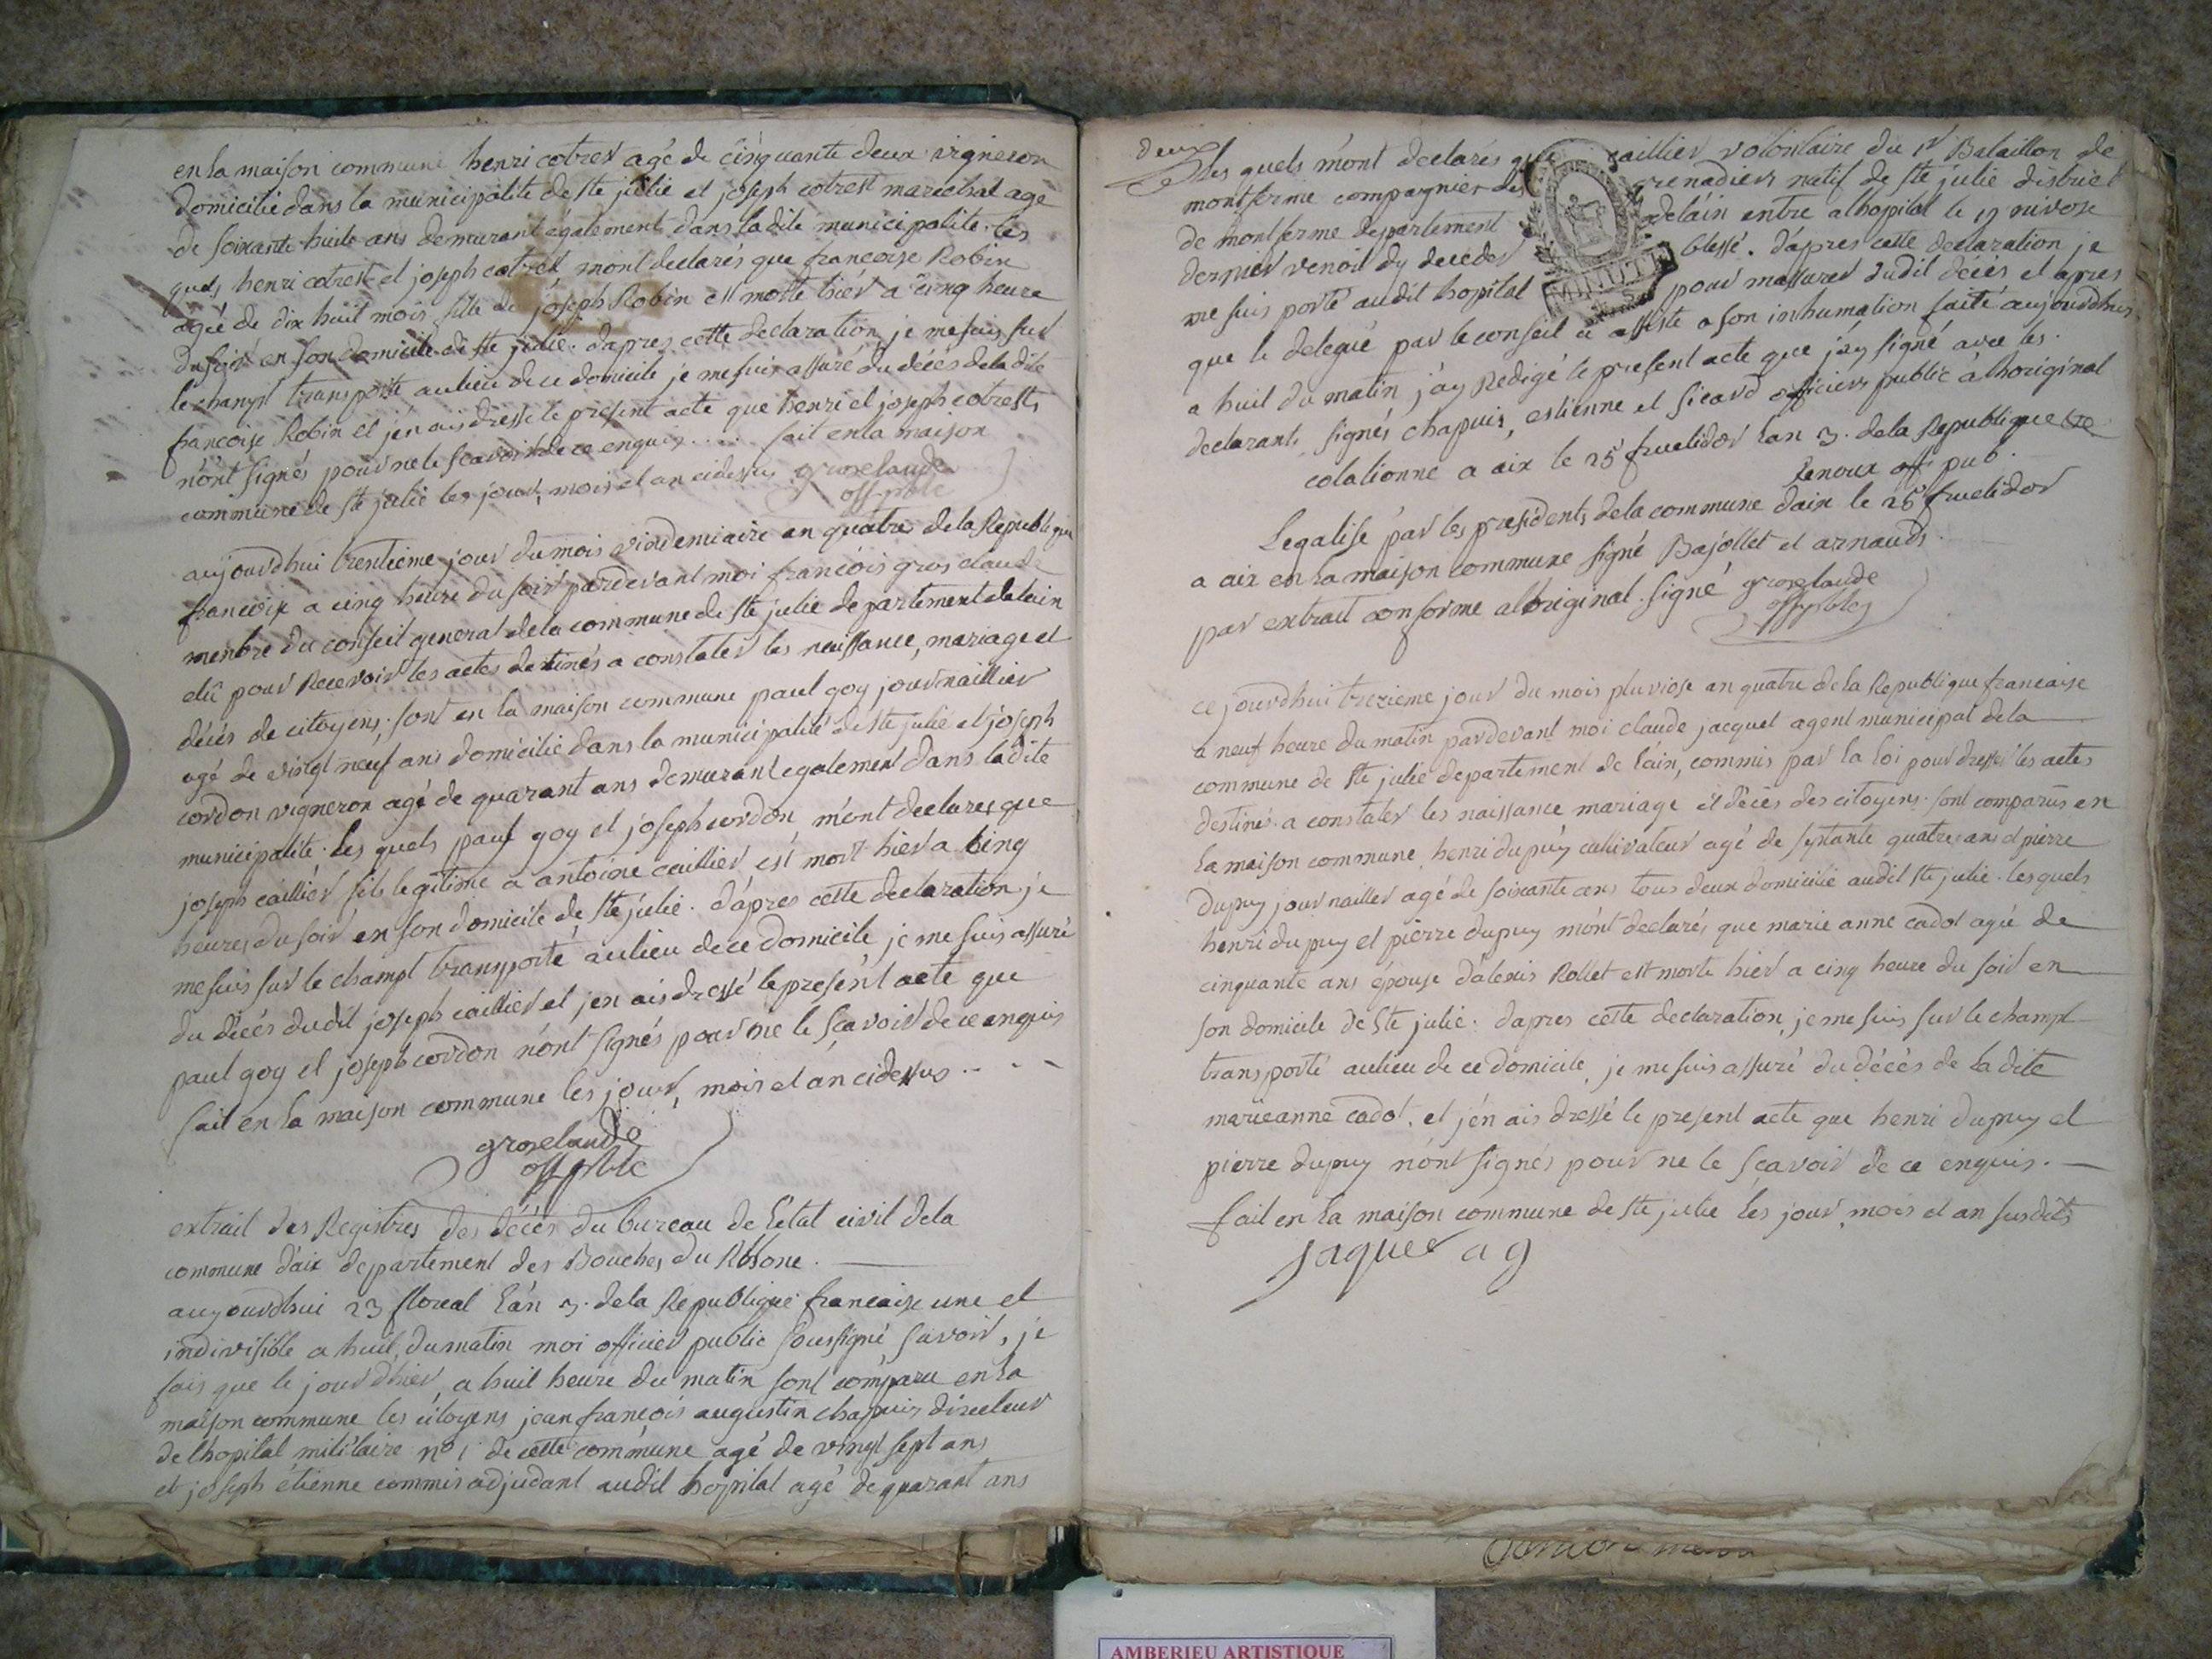 en la maison commune henri cotrest agé de cinquante deux vigneron
domicilié dans la municipalité de ste julie et joseph cotrest marechal agé
de soixante huite ans demurant également dans la dite municipalite. les
quels henri cotrest et joseph cotrest mont declarés que francoise Robin
agée de dix huit mois fille de joseph Robin est morte hièr a cinq heure
du soir en son domicile de ste julie. dapres cette declaration je me suis sur
le champt transporté au lieu de ce domicile je me suis assuré du décès de la dite
francoise Robin et jen ais dressé le present acte que henri et joseph cotrests
nont signés pour ne le scavoir de ce enquis ..... fait en la maison
commune de ste julie les jour, mois et an cidessus groselaude
off pblc
aujourdhui trentieme jour du mois vindemiaire an quatre de la Republique
francoise a cinq heure du soir pardevant moi françois gros claude
menbre du conseil general de la commune de ste julie departement de lain
elû pour Recevoir les actes destinés a constater les naissance, mariage et
décés de citoyens; sont en la maison commune paul goy journaillier
agé de vingt neuf ans domicilié dans la municipalité de ste julie et joseph
cordon vigneron agé de quarant ans demurant egalement dans la dite
municipalité. les quels paul goy et joseph cordon m'ont declarés que
joseph caillier fils legitime a antoine caillier est mort hier a cinq
heures du soir en son domicile de ste julie. d'apres cette declaration je
me suis sur le champt transporté au lieu de ce domicile je me suis assuré
du décés dudit joseph caillier et jen ais dressé le present acte que
paul goy et joseph cordon nont signés pour ne le scavoir de ce enquis
fait en la maison commune les jour, mois et an cidessus .. - -
groselaude
off pblc
extrait des Registres des décés du bureau de l'etat civil de la
commune d'aix departement des Bouches du Rhone.
aujourdhui 23 floreal l'an 3. de la Republique francaise une et
indivisible a huit du matin moi officier public soussigné, savoir, je
fais que le jour d'hier, a huit heure du matin sont comparu en la
maison commune les citoyens jean françois augustin chapuis directeur
de l'hopital militaire n° 1 de cette commune agé de vingt sept ans
et joseph étienne commis adjudant audit hopital agé de quarant ans
deux
les quels m'ont declarés que caillier volontaire du 1r Bataillon de
montferme compagnier des grenadiers natif de ste julie district
de montferme departement de lain entre a lhopital le 19 nivose
dernier venoit dy deceder blessé. d'apres cette declaration je
me suis porté audit hopital pour massurer dudit décés et apres
MINUTE
que le delegué par le conseil a assisté a son inhumation faite aujourdhui
a huit du matin j'ay Redigé le present acte que j'ay signé avec les
declarants, signés chapuis, estienne et sicard officiers public a lhoriginal
colationné a aix le 25 fruclidor l'an 3. de la Republique
Renoux off pub.
Legalisé par les presidents de la commune daix le 25 fruclidor
a aix en la maison commune signé Bajollet et arnauds.
par extrait conforme a l'original. signé groselaude
off pblc
cejourdhui trezieme jour du mois pluviose an quatre de la Republique francaise
a neuf heure du matin pardevant moi claude jacquet agent municipal de la
commune de ste julie departement de l'ain, commis par la loi pour dresser les actes
destinés a constater les naissance mariage et décés des citoyens. sont comparus en
la maison commune henri dupuy cultivateur agé de septante quatre ans et pierre
dupuy journaillier agé de soixante ans tous deux domicilié audit ste julie. lesquels
henri dupuy et pierre dupuy mônt declarés que marie anne cadot agée de
cinquante ans épouse d'alexis Rollet est morte hier a cinq heure du soir en
son domicile de ste julie. dapres cette declaration, je me suis sur le champt
transporté au lieu de ce domicile, je me suis assuré du décés de la dite
marie anne cadot. et j'en ais dressé le present acte que henri dupuy et
pierre dupuy nônt signés pour ne le scavoir de ce enquis. —
fait en la maison commune de ste julie les jour, mois et an susdits
Jaquet ag
AMBERIEU ARTISTIQUE